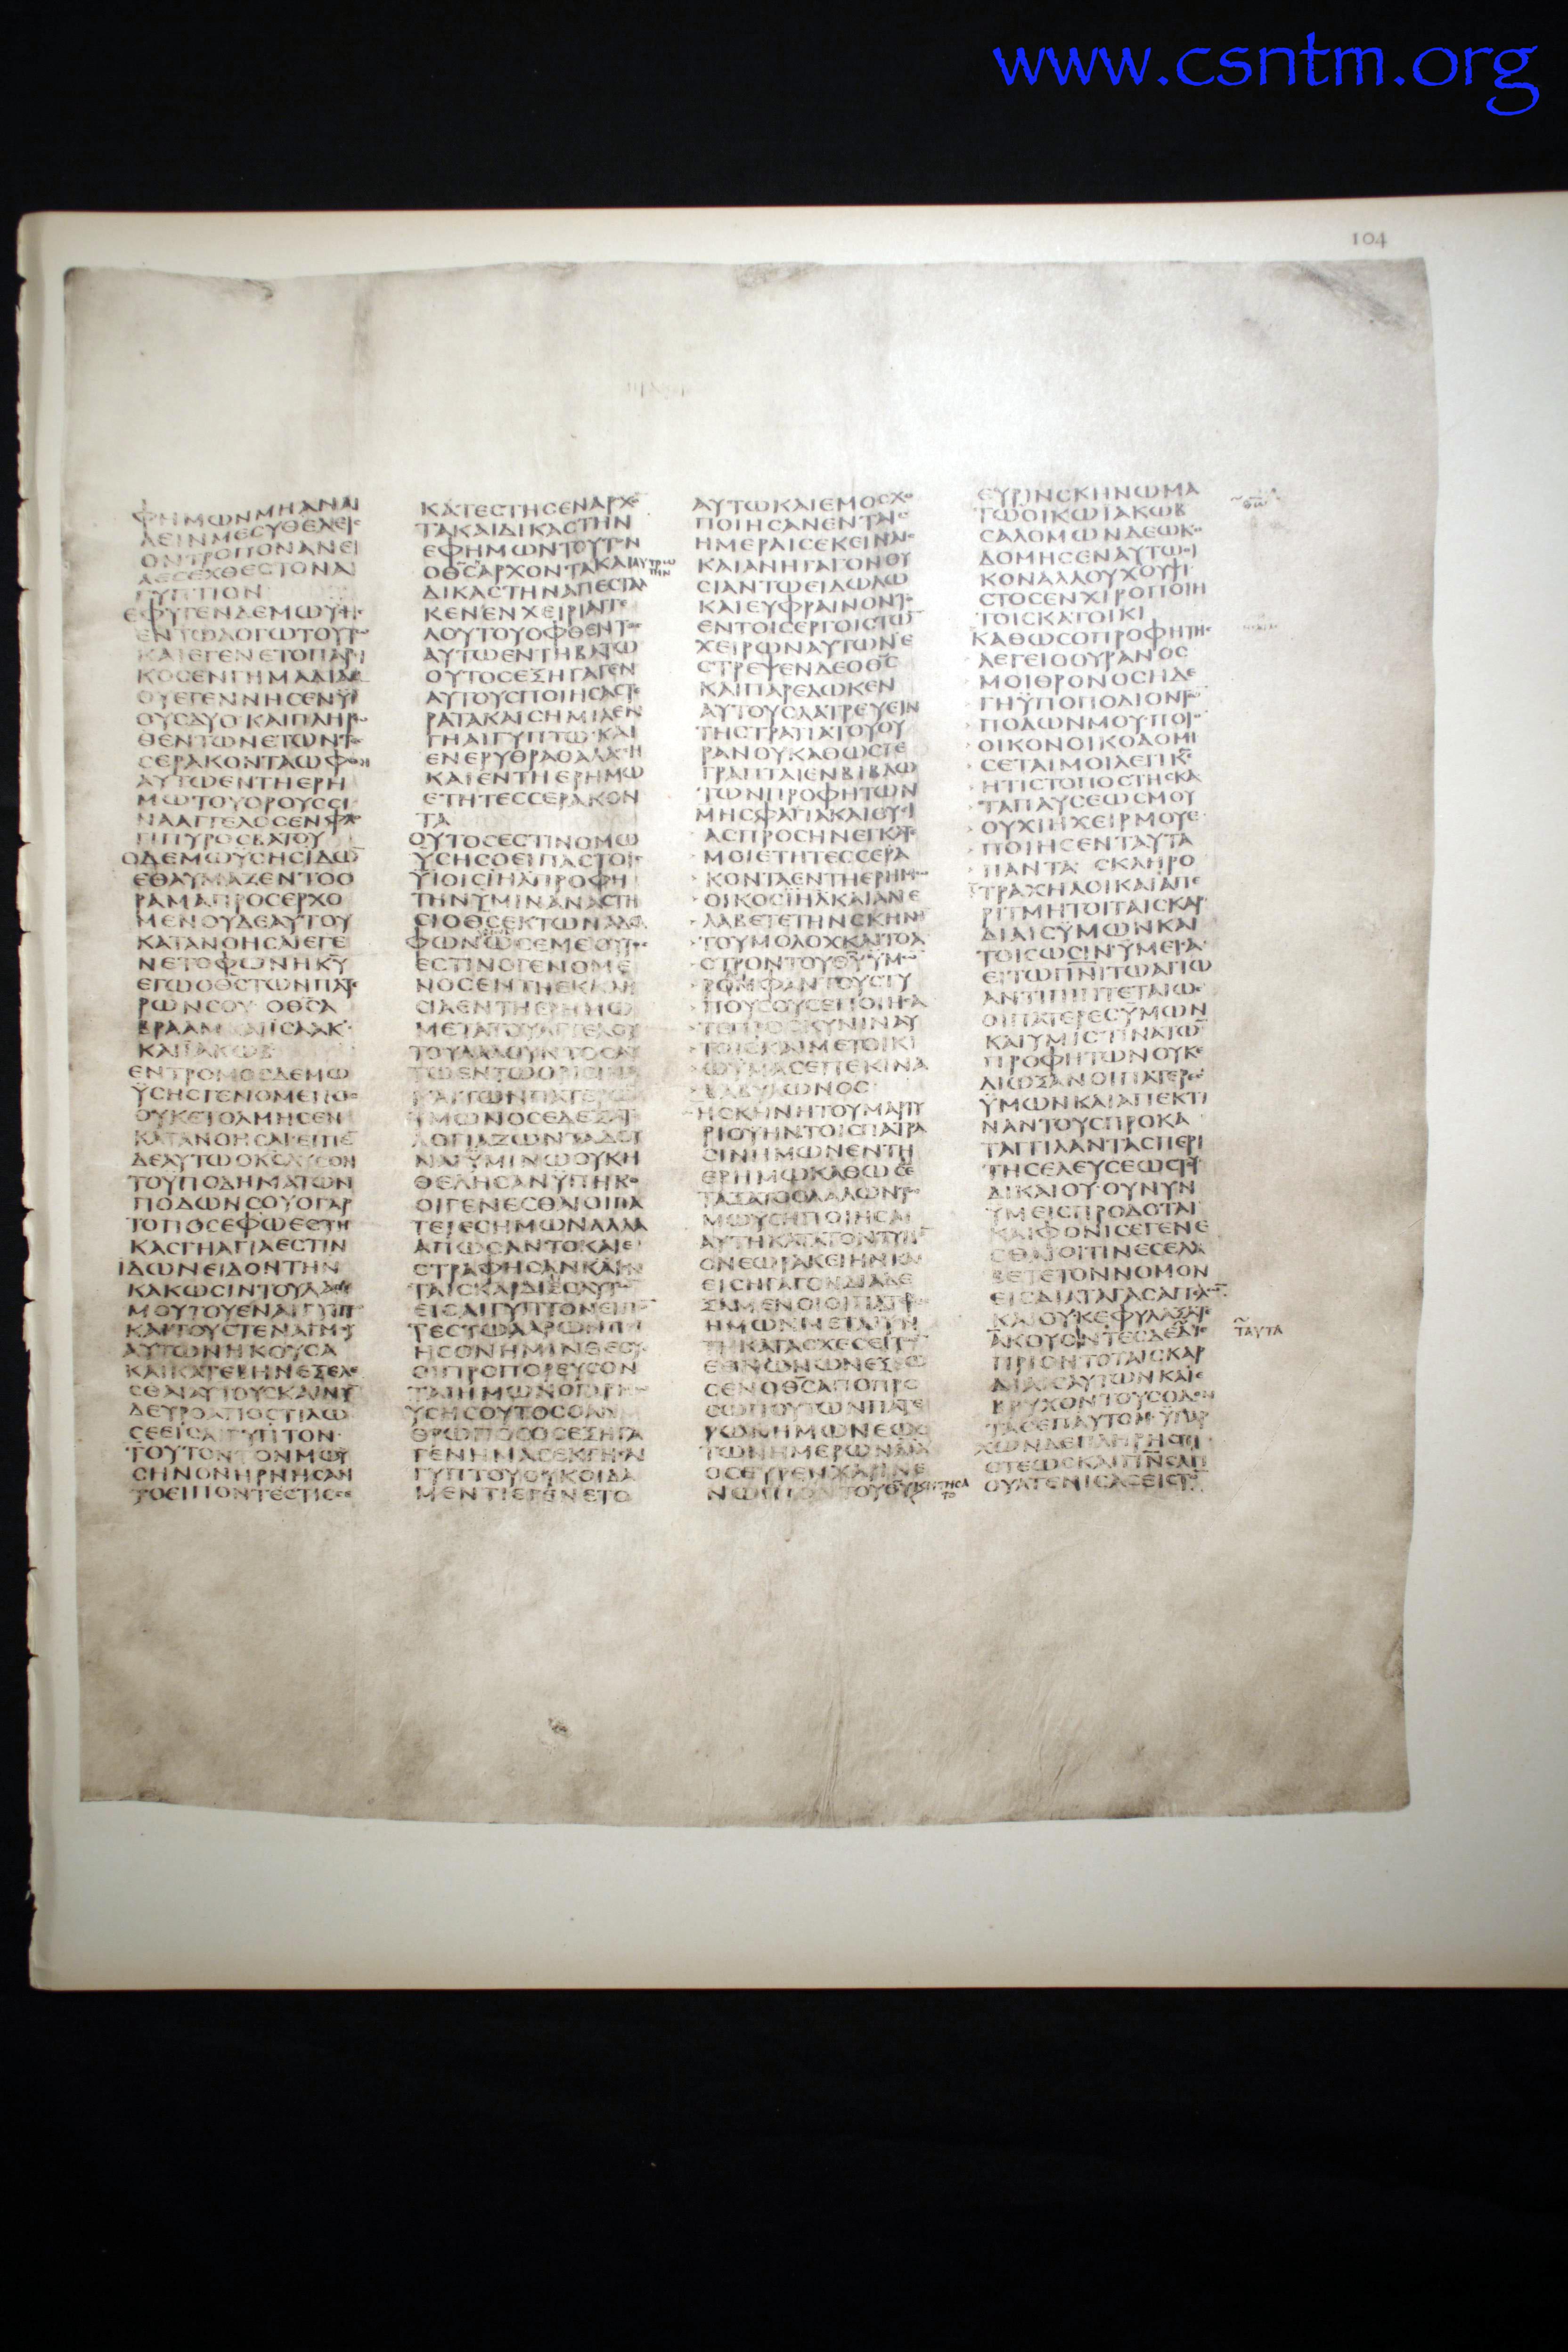 www.csntm.org
104
ΦΗΜΩΝΜΗΑΝΑΙ
ΛΕΙΝΜΕCΥΘΕΛΕΙ
ΟΝΤΡΟΠΟΝΑΝΕΙ
ΛΕCΕΧΘΕCΤΟΝΑΙ
ΓΥΠΤΙΟΝ
ΕΦΥΓΕΝΔΕΜΩΥCΗC
ΕΝΤΩΛΟΓΩΤΟΥΤΩ
ΚΑΙΕΓΕΝΕΤΟΠΑΡΟΙ
ΚΟCΕΝΓΗΜΑΔΙΑΜ
ΟΥΕΓΕΝΝΗCΕΝΥΙ
ΟΥCΔΥΟ·ΚΑΙΠΛΗΡΩ
ΘΕΝΤΩΝΕΤΩΝΤΕC
CΕΡΑΚΟΝΤΑΩΦΘΗ
ΑΥΤΩΕΝΤΗΕΡΗ
ΜΩΤΟΥΟΡΟΥCCΙ
ΝΑΑΓΓΕΛΟCΕΝΦΛΟ
ΓΙΠΥΡΟCΒΑΤΟΥ
ΟΔΕΜΩΥCΗCΙΔΩ̅
ΕΘΑΥΜΑΖΕΝΤΟΟ
ΡΑΜΑΠΡΟCΕΡΧΟ
ΜΕΝΟΥΔΕΑΥΤΟΥ
ΚΑΤΑΝΟΗCΑΙΕΓΕ
ΝΕΤΟΦΩΝΗΚ̅Υ̅
ΕΓΩΟΘ̅C̅ΤΩΝΠΑΤΕ
ΡΩΝCΟΥ ΟΘ̅C̅Α
ΒΡΑΑΜΚΑΙΙCΑΑΚ
ΚΑΙΙΑΚΩΒ
ΕΝΤΡΟΜΟCΔΕΜΩ
ΥCΗCΓΕΝΟΜΕΝΟC
ΟΥΚΕΤΟΛΜΗCΕΝ
ΚΑΤΑΝΟΗCΑΙΕΙΠΕ
ΔΕΑΥΤΩΟΚ̅C̅ΛΥCΟΝ
ΤΟΥΠΟΔΗΜΑΤΩΝ
ΠΟΔΩΝCΟΥΟΓΑΡ
ΤΟΠΟCΕΦΩΕCΤΗ
ΚΑCΓΗΑΓΙΑΕCΤΙΝ
ΙΔΩΝΕΙΔΟΝΤΗΝ
ΚΑΚΩCΙΝΤΟΥΛΑΟΥ
ΜΟΥΤΟΥΕΝΑΙΓΥΠΤΩ
ΚΑΙΤΟΥCΤΕΝΑΓΜΟΥ
ΑΥΤΩΝΗΚΟΥCΑ
ΚΑΙΚΑΤΕΒΗΝΕΞΕΛΕ
CΘΑΙΑΥΤΟΥCΚΑΙΝΥ̅
ΔΕΥΡΟΑΠΟCΤΙΛΩ
CΕΕΙCΑΙΓΥΠΤΟΝ·
ΤΟΥΤΟΝΤΟΝΜΩΥ
CΗΝΟΝΗΡΝΗCΑΝ
ΤΟΕΙΠΟΝΤΕCΤΙCCΕ
ΚΑΤΕCΤΗCΕΝΑΡΧΟ
ΤΑΚΑΙΔΙΚΑCΤΗΝ
ΕΦΗΜΩΝΤΟΥΤΟΝ
ΟΘ̅C̅ΑΡΧΟΝΤΑΚΑΙ ΛΥΤΡΩ
ΤΗΝ
ΔΙΚΑCΤΗΝΑΠΕCΤΑΛ
ΚΕΝΕΝΧΕΙΡΙΑΓΓΕ
ΛΟΥΤΟΥΟΦΘΕΝΤΟC
ΑΥΤΩΕΝΤΗΒΑΤΩ
ΟΥΤΟCΕΞΗΓΑΓΕΝ
ΑΥΤΟΥCΠΟΙΗCΑCΤΕ
ΡΑΤΑΚΑΙCΗΜΙΑΕΝ
ΓΗΑΙΓΥΠΤΩ·ΚΑΙ
ΕΝΕΡΥΘΡΑΘΑΛΑCCΗ
ΚΑΙΕΝΤΗΕΡΗΜΩ
ΕΤΗΤΕCCΕΡΑΚΟΝ
ΤΑ
ΟΥΤΟCΕCΤΙΝΟΜΩ
ΥCΗCΟΕΙΠΑCΤΟΙC
ΥΙΟΙCΙ̅Η̅Λ̅ΠΡΟΦΗ
ΤΗΝΥΜΙΝΑΝΑCΤΗ
CΙΟΘ̅C̅ΕΚΤΩΝΑΔΕΛ
ΦΩΝΩCΕΜΕΟΥΤΟC
ΕCΤΙΝΟΓΕΝΟΜΕ
ΝΟCΕΝΤΗΕΚΚΛΗ
CΙΑΕΝΤΗΕΡΗΜΩ
ΜΕΤΑΤΟΥΑΓΓΕΛΟΥ
ΤΟΥΛΑΛΟΥΝΤΟCΑΥ
ΤΩΕΝΤΩΟΡΙCΙΝΑ
ΚΑΙΤΩΝΠΑΤΕΡΩ̅
ΥΜΩΝΟCΕΔΕΞΑΤΟ
ΛΟΓΙΑΖΩΝΤΑΔΟΥ
ΝΑΙΥΜΙΝΩΟΥΚΗ
ΘΕΛΗCΑΝΥΠΗΚΟ
ΟΙΓΕΝΕCΘΑΙΟΙΠΑ
ΤΕΡΕCΗΜΩΝΑΛΛΑ
ΑΠΩCΑΝΤΟΚΑΙΕ
CΤΡΑΦΗCΑΝΚΑΙΕΝ
ΤΑΙCΚΑΡΔΙΑΙCΑΥΤΩ̅
ΕΙCΑΙΓΥΠΤΟΝΕΙΠΟ̅
ΤΕCΤΩΑΑΡΩΝΠΟΙ
ΗCΟΝΗΜΙΝΘΕΟΥC
ΟΙΠΡΟΠΟΡΕΥCΟΝ
ΤΑΙΗΜΩΝΟΓΑΡΜΩ
ΥCΗCΟΥΤΟCΟΑΝ
ΘΡΩΠΟCΟCΕΞΗΓΑ
ΓΕΝΗΜΑCΕΚΓΗCΑΙ
ΓΥΠΤΟΥΟΥΚΟΙΔΑ
ΜΕΝΤΙΕΓΕΝΕΤΟ
ΑΥΤΩΚΑΙΕΜΟCΧΟ
ΠΟΙΗCΑΝΕΝΤΑΙC
ΗΜΕΡΑΙCΕΚΕΙΝΑΙC
ΚΑΙΑΝΗΓΑΓΟΝΘΥ
CΙΑΝΤΩΕΙΔΩΛΩ
ΚΑΙΕΥΦΡΑΙΝΟΝΤΟ
ΕΝΤΟΙCΕΡΓΟΙCΤΩ̅
ΧΕΙΡΩΝΑΥΤΩΝΕ
CΤΡΕΨΕΝΔΕΟΘ̅C̅
ΚΑΙΠΑΡΕΔΩΚΕΝ
ΑΥΤΟΥCΛΑΤΡΕΥΕΙΝ
ΤΗCΤΡΑΤΙΑΤΟΥΟΥ
ΡΑΝΟΥ·ΚΑΘΩCΓΕ
ΓΡΑΠΤΑΙΕΝΒΙΒΛΩ
ΤΩΝΠΡΟΦΗΤΩΝ
ΜΗCΦΑΓΙΑΚΑΙΘΥCΙ
ΑCΠΡΟCΗΝΕΓΚΑΤΕ
ΜΟΙΕΤΗΤΕCCΕΡΑ
ΚΟΝΤΑΕΝΤΗΕΡΗΜΩ
ΟΙΚΟCΙ̅Η̅Λ̅ΚΑΙΑΝΕ
ΛΑΒΕΤΕΤΗΝCΚΗΝΗ
ΤΟΥΜΟΛΟΧΚΑΙΤΟΑ
CΤΡΟΝΤΟΥΘ̅Υ̅ΥΜΩ
ΡΟΜΦΑΝΤΟΥCΤΥ
ΠΟΥCΟΥCΕΠΟΙΗCΑ
ΤΕΠΡΟCΚΥΝΙΝΑΥ
ΤΟΙCΚΑΙΜΕΤΟΙΚΙ
ΩΥΜΑCΕΠΕΚΙΝΑ
ΒΑΒΥΛΩΝΟC
ΗCΚΗΝΗΤΟΥΜΑΡΤΥ
ΡΙΟΥΗΝΤΟΙCΠΑΤΡΑ
CΙΝΗΜΩΝΕΝΤΗ
ΕΡΗΜΩΚΑΘΩCΔΙΕ
ΤΑΞΑΤΟΟΛΑΛΩΝΤΩ
ΜΩΥCΗΠΟΙΗCΑΙ
ΑΥΤΗΚΑΤΑΤΟΝΤΥΠΟ̅
ΟΝΕΩΡΑΚΕΙΗΝΚΑΙ
ΕΙCΗΓΑΓΟΝΔΙΑΔΕ
ΞΑΜΕΝΟΙΟΙΠΑΤΕΡΕC
ΗΜΩΝΜΕΤΑΙΗCΥ
ΤΗΚΑΤΑCΧΕCΕΙΤΩ̅
ΕΘΝΩΝΩΝΕΞΕΩ
CΕΝΟΘ̅C̅ΑΠΟΠΡΟ
CΩΠΟΥΤΩΝΠΑΤΕ
ΡΩΝΗΜΩΝΕΩC
ΤΩΝΗΜΕΡΩΝΔΑΔ
ΟCΕΥΡΕΝΧΑΡΙΝΕ
ΝΩΠΙΟΝΤΟΥΘ̅Υ̅ ΚΑΙΗΤΗCΑ
ΤΟ
ΕΥΡΙΝCΚΗΝΩΜΑ
ΤΩΟΙΚΩΙΑΚΩΒ
CΑΛΟΜΩΝΔΕΩΚΟ
ΔΟΜΗCΕΝΑΥΤΩΟΙ
ΚΟΝΑΛΛΟΥΧΟΥΨΙ
CΤΟCΕΝΧΙΡΟΠΟΙΗ
ΤΟΙCΚΑΤΟΙΚΙ
ΚΑΘΩCΟΠΡΟΦΗΤΗC
ΛΕΓΕΙΟΟΥΡΑΝΟC
ΜΟΙΘΡΟΝΟCΗΔΕ
ΓΗΥΠΟΠΟΔΙΟΝΤΩ̅
ΠΟΔΩΝΜΟΥ·ΠΟΙΟ̅
ΟΙΚΟΝΟΙΚΟΔΟΜΗ
CΕΤΑΙΜΟΙΛΕΓΙΚ̅C̅
ΗΤΙCΤΟΠΟCΤΗCΚΑ
ΤΑΠΑΥCΕΩCΜΟΥ
ΟΥΧΙΗΧΕΙΡΜΟΥΕ
ΠΟΙΗCΕΝΤΑΥΤΑ
ΠΑΝΤΑ· CΚΛΗΡΟ
ΤΡΑΧΗΛΟΙΚΑΙΑΠΕ
ΡΙΤΜΗΤΟΙΤΑΙCΚΑΡ
ΔΙΑΙCΥΜΩΝΚΑΙ
ΤΟΙCΩCΙΝ·ΥΜΕΙCΑ
ΕΙΤΩΠ̅Ν̅Ι̅ΤΩΑΓΙΩ
ΑΝΤΙΠΙΠΤΕΤΑΙΩC
ΟΙΠΑΤΕΡΕCΥΜΩΝ
ΚΑΙΥΜΙCΤΙΝΑΤΩ̅
ΠΡΟΦΗΤΩΝΟΥΚΕ
ΔΙΩΞΑΝΟΙΠΑΤΕΡΕC
ΥΜΩΝΚΑΙΑΠΕΚΤΙ
ΝΑΝΤΟΥCΠΡΟΚΑ
ΤΑΓΓΙΛΑΝΤΑCΠΕΡΙ
ΤΗCΕΛΕΥCΕΩCΤΟΥ
ΔΙΚΑΙΟΥ·ΟΥΝΥΝ
ΥΜΕΙCΠΡΟΔΟΤΑΙ
ΚΑΙΦΟΝΙCΕΓΕΝΕ
CΘΑΙΟΙΤΙΝΕCΕΛΑ
ΒΕΤΕΤΟΝΝΟΜΟΝ
ΕΙCΔΙΑΤΑΓΑCΑΓΓΕΛΩ̅
ΚΑΙΟΥΚΕΦΥΛΑΞΑΤΕ
ΑΚΟΥΟΝΤΕCΔΕΔΙΕ
ΤΑΥΤΑ
ΠΡΙΟΝΤΟΤΑΙCΚΑΡ
ΔΙΑΙCΑΥΤΩΝΚΑΙΕ
ΒΡΥΧΟΝΤΟΥCΟΔΟΝ
ΤΑCΕΠΑΥΤΟΝ·ΥΠΑΡ
ΧΩΝΔΕΠΛΗΡΗCΠΙ
CΤΕΩCΚΑΙΠ̅Ν̅C̅ΑΓΙ
ΟΥΑΤΕΝΙCΑCΕΙCΤΟ̅